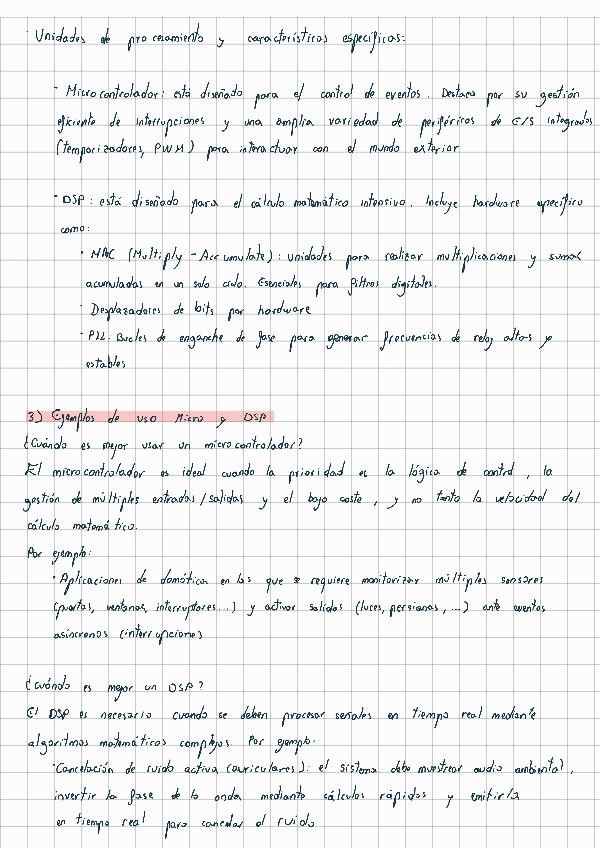 · Unidades de procesamiento y características específicas:
· Microcontrolador: está diseñado para el control de eventos. Destaca por su gestión
eficiente de interrupciones y una amplia variedad de periféricos de E/S integrados
(temporizadores, PWM) para interactuar con el mundo exterior
· DSP: está diseñado para el cálculo matemático intensivo. Incluye hardware específico
como:
· MAC (Multiply - Accumulate): unidades para realizar multiplicaciones y sumas
acumuladas en un solo ciclo. Esenciales para filtros digitales.
· Desplazadores de bits por hardware
· PLL: Bucles de enganche de fase para generar frecuencias de reloj altas y
estables
3) Ejemplos de uso Micro y DSP
¿Cuándo es mejor usar un microcontrolador?
El microcontrolador es ideal cuando la prioridad es la lógica de control, la
gestión de múltiples entradas/salidas y el bajo coste, y no tanto la velocidad del
cálculo matemático.
Por ejemplo:
· Aplicaciones de domótica en las que se requiere monitorizar múltiples sensores
(puertas, ventanas, interruptores...) y activar salidas (luces, persianas, ...) ante eventos
asíncronos (interrupciones)
¿Cuándo es mejor un DSP?
El DSP es necesario cuando se deben procesar señales en tiempo real mediante
algoritmos matemáticos complejos. Por ejemplo:
· Cancelación de ruido activa (auriculares): el sistema debe muestrear audio ambiental,
invertir la fase de la onda mediante cálculos rápidos y emitirla
en tiempo real para cancelar el ruido